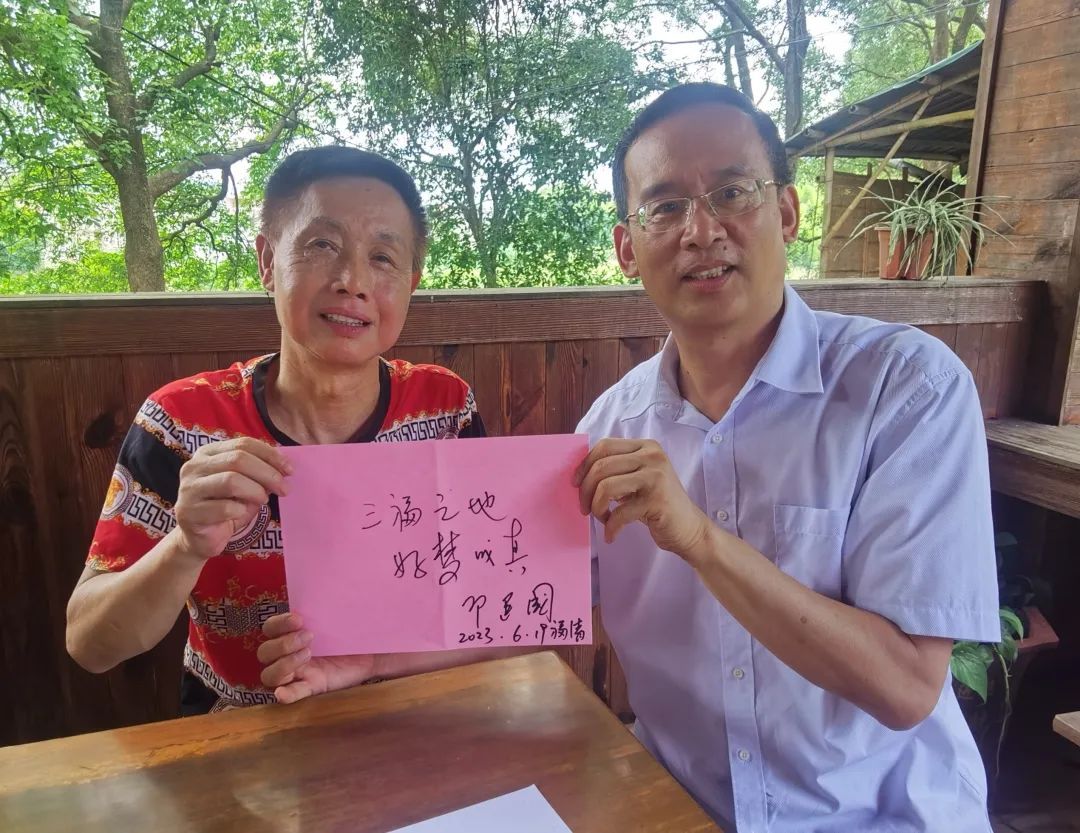 三福之地
好梦成真
邓建国
2023.6.19 福清